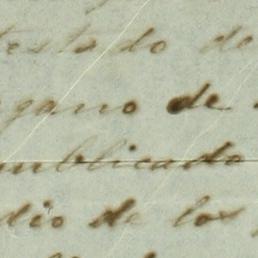 testado de
gano de
publicado
dio de los